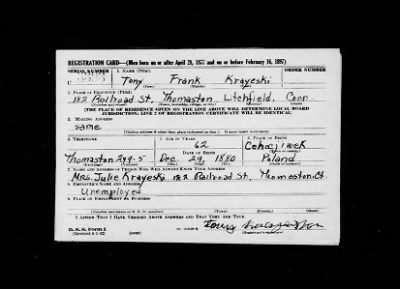 REGISTRATION CARD—(Men born on or after April 28, 1877 and on or before February 16, 1897)
SERIAL NUMBER 1. NAME (Print) ORDER NUMBER
Tony Frank Krayeski
(First) (Middle) (Last)
2. PLACE OF RESIDENCE (Print)
182 Railroad St, Thomaston, Litchfield, Conn
[THE PLACE OF RESIDENCE GIVEN ON THE LINE ABOVE WILL DETERMINE LOCAL BOARD
JURISDICTION; LINE 2 OF REGISTRATION CERTIFICATE WILL BE IDENTICAL]
3. MAILING ADDRESS
same
[Mailing address if other than place indicated on line 2. If same insert word same]
4. TELEPHONE 5. AGE IN YEARS 6. PLACE OF BIRTH
62
DATE OF BIRTH
Thomaston 299-5 Dec. 29, 1880 Poland
7. NAME AND ADDRESS OF PERSON WHO WILL ALWAYS KNOW YOUR ADDRESS
Mrs. Julie Krayeski 182 Railroad St., Thomaston, Ct.
8. EMPLOYER'S NAME AND ADDRESS
Unemployed
9. PLACE OF EMPLOYMENT OR BUSINESS
I AFFIRM THAT I HAVE VERIFIED ABOVE ANSWERS AND THAT THEY ARE TRUE.
D. S. S. Form 1
(Revised 4-1-42) (over)